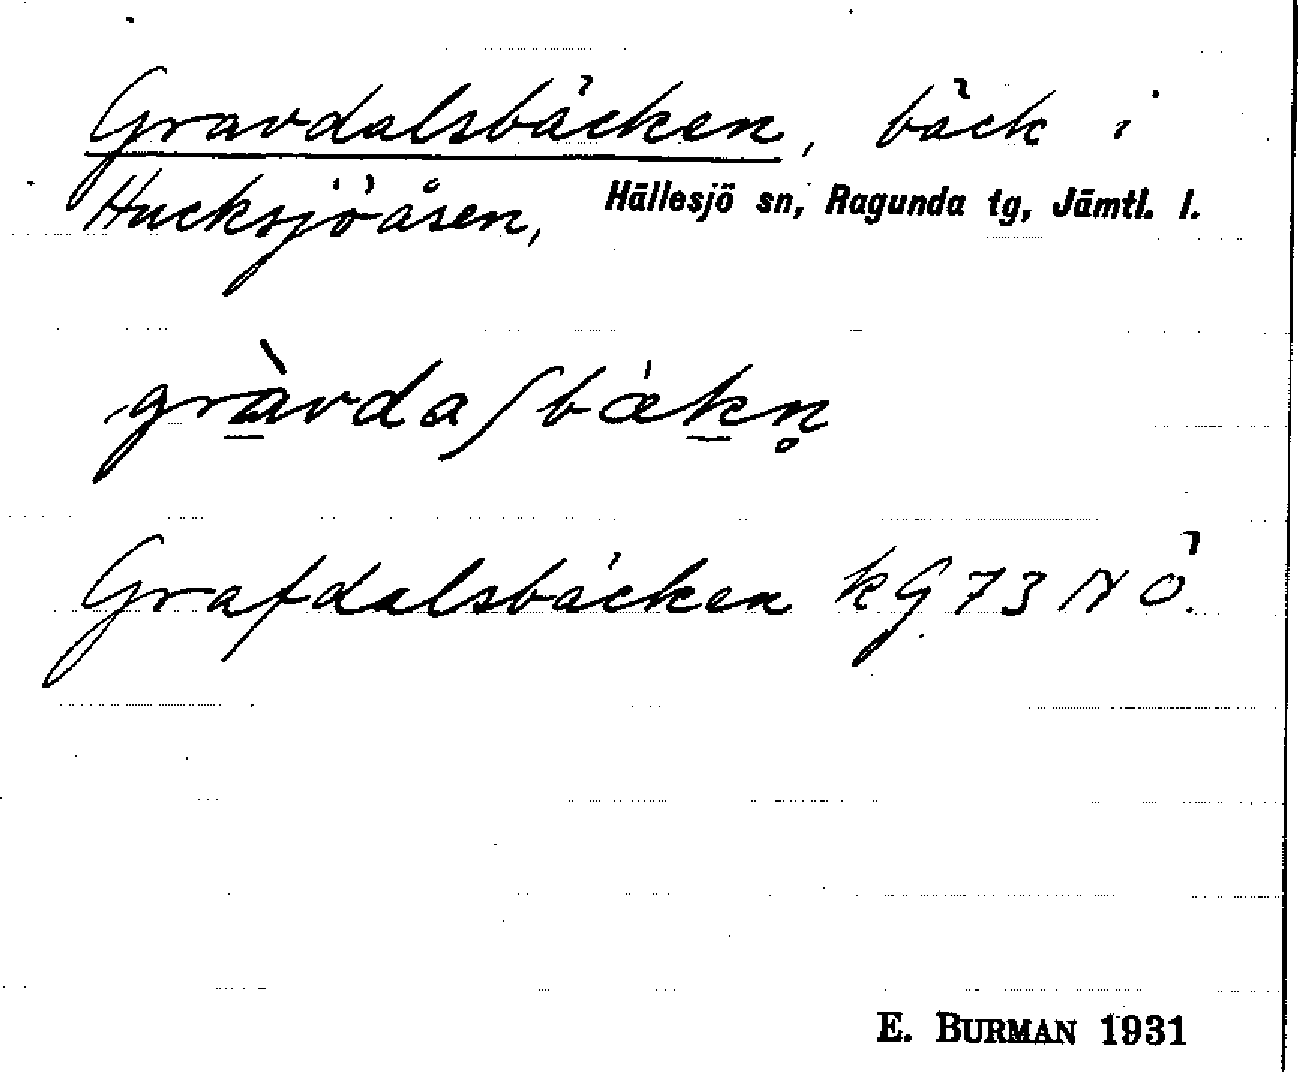 Gravdalsbäcken, bäck i
Hucksjöåsen, Hällesjö sn, Ragunda tg, Jämtl. l.
gràvdaʃbækn̥
Grafdalsbäcken kG 73 NÖ.
E. BURMAN 1931